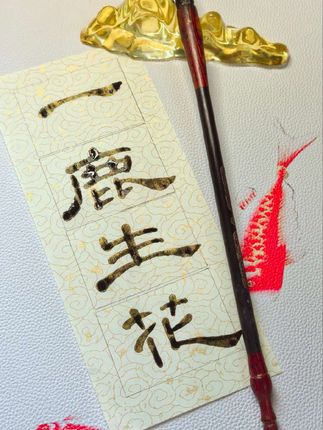 一鹿生花